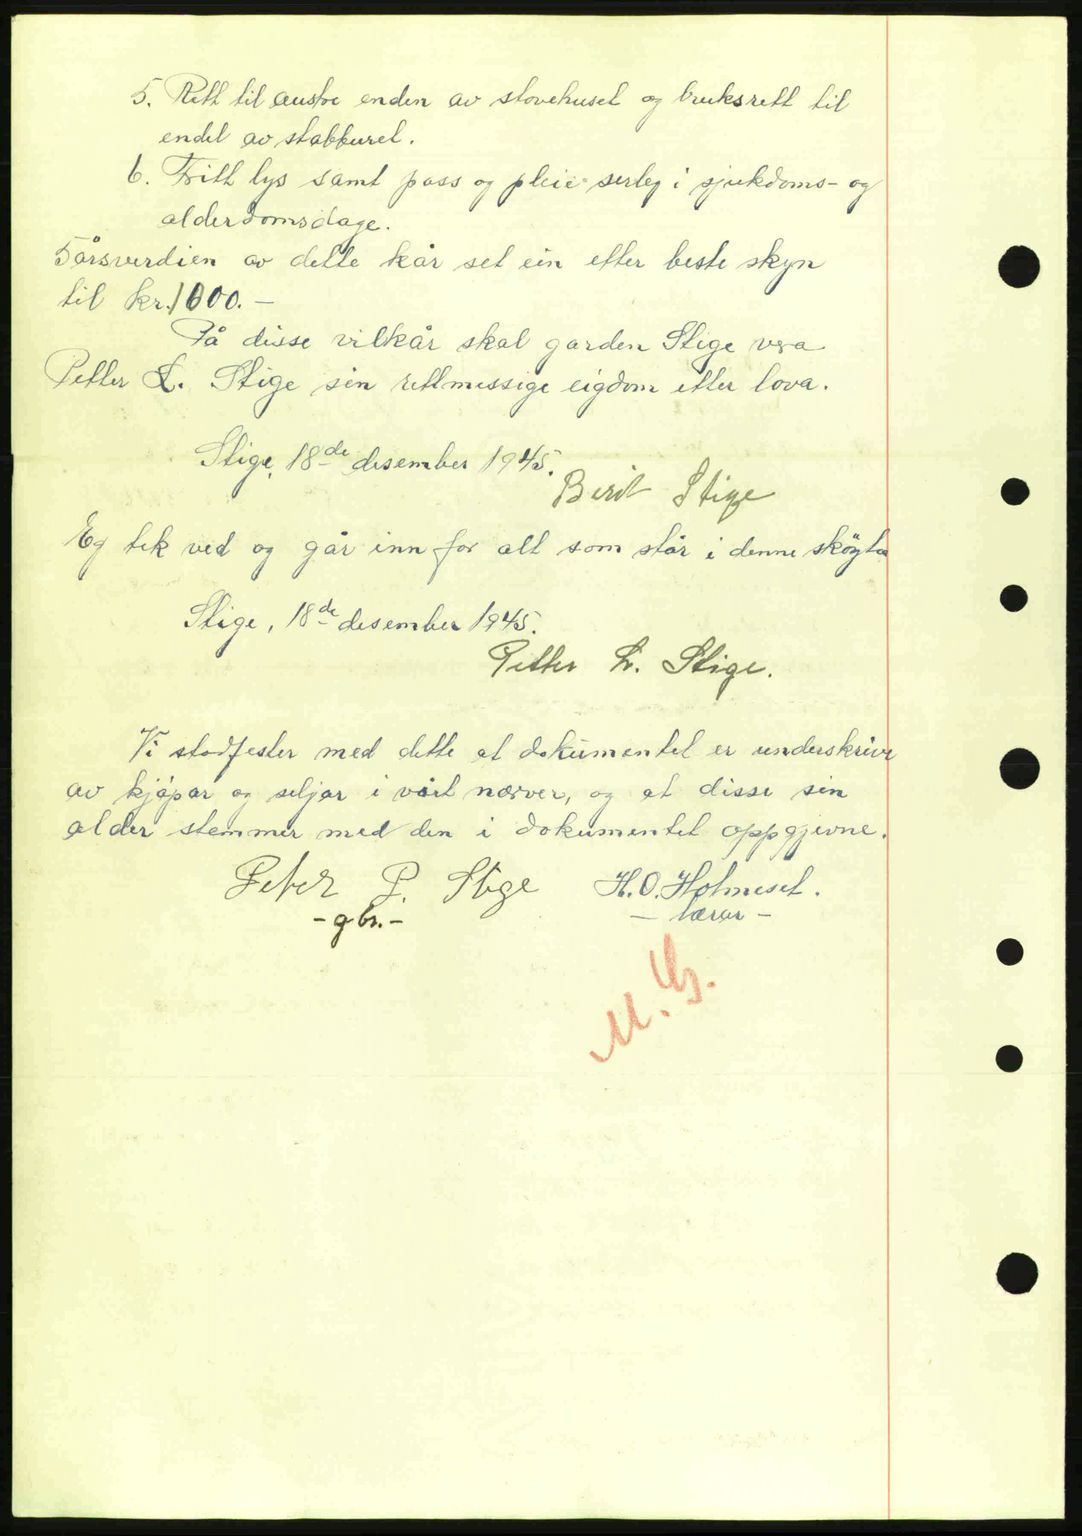 5. Rett til austre enden av stovehuset og bruksrett til
endel av stabburet.
6. Fritt lys samt pass og pleie serleg i sjukdoms- og
alderdomsdage.
5 årsverdien av dette kår set ein etter beste skyn
til kr. 1000.—
På disse vilkår skal garden Stige vera
Petter L. Stige sin rettmessige eigdom etter lova.
Stige, 18de desember 1945.
Berit Stige
Eg tek ved og går inn for alt som står i denne skøyta
Stige, 18de desember 1945.
Petter L. Stige.
Vi stadfester med dette at dokumentet er underskrive
av kjøpar og seljar i vårt nærver, og at disse sin
alder stemmer med den i dokumentet oppgjevne.
Peter P. Stige H. O. Holmeset.
- gbr. - — lærar —